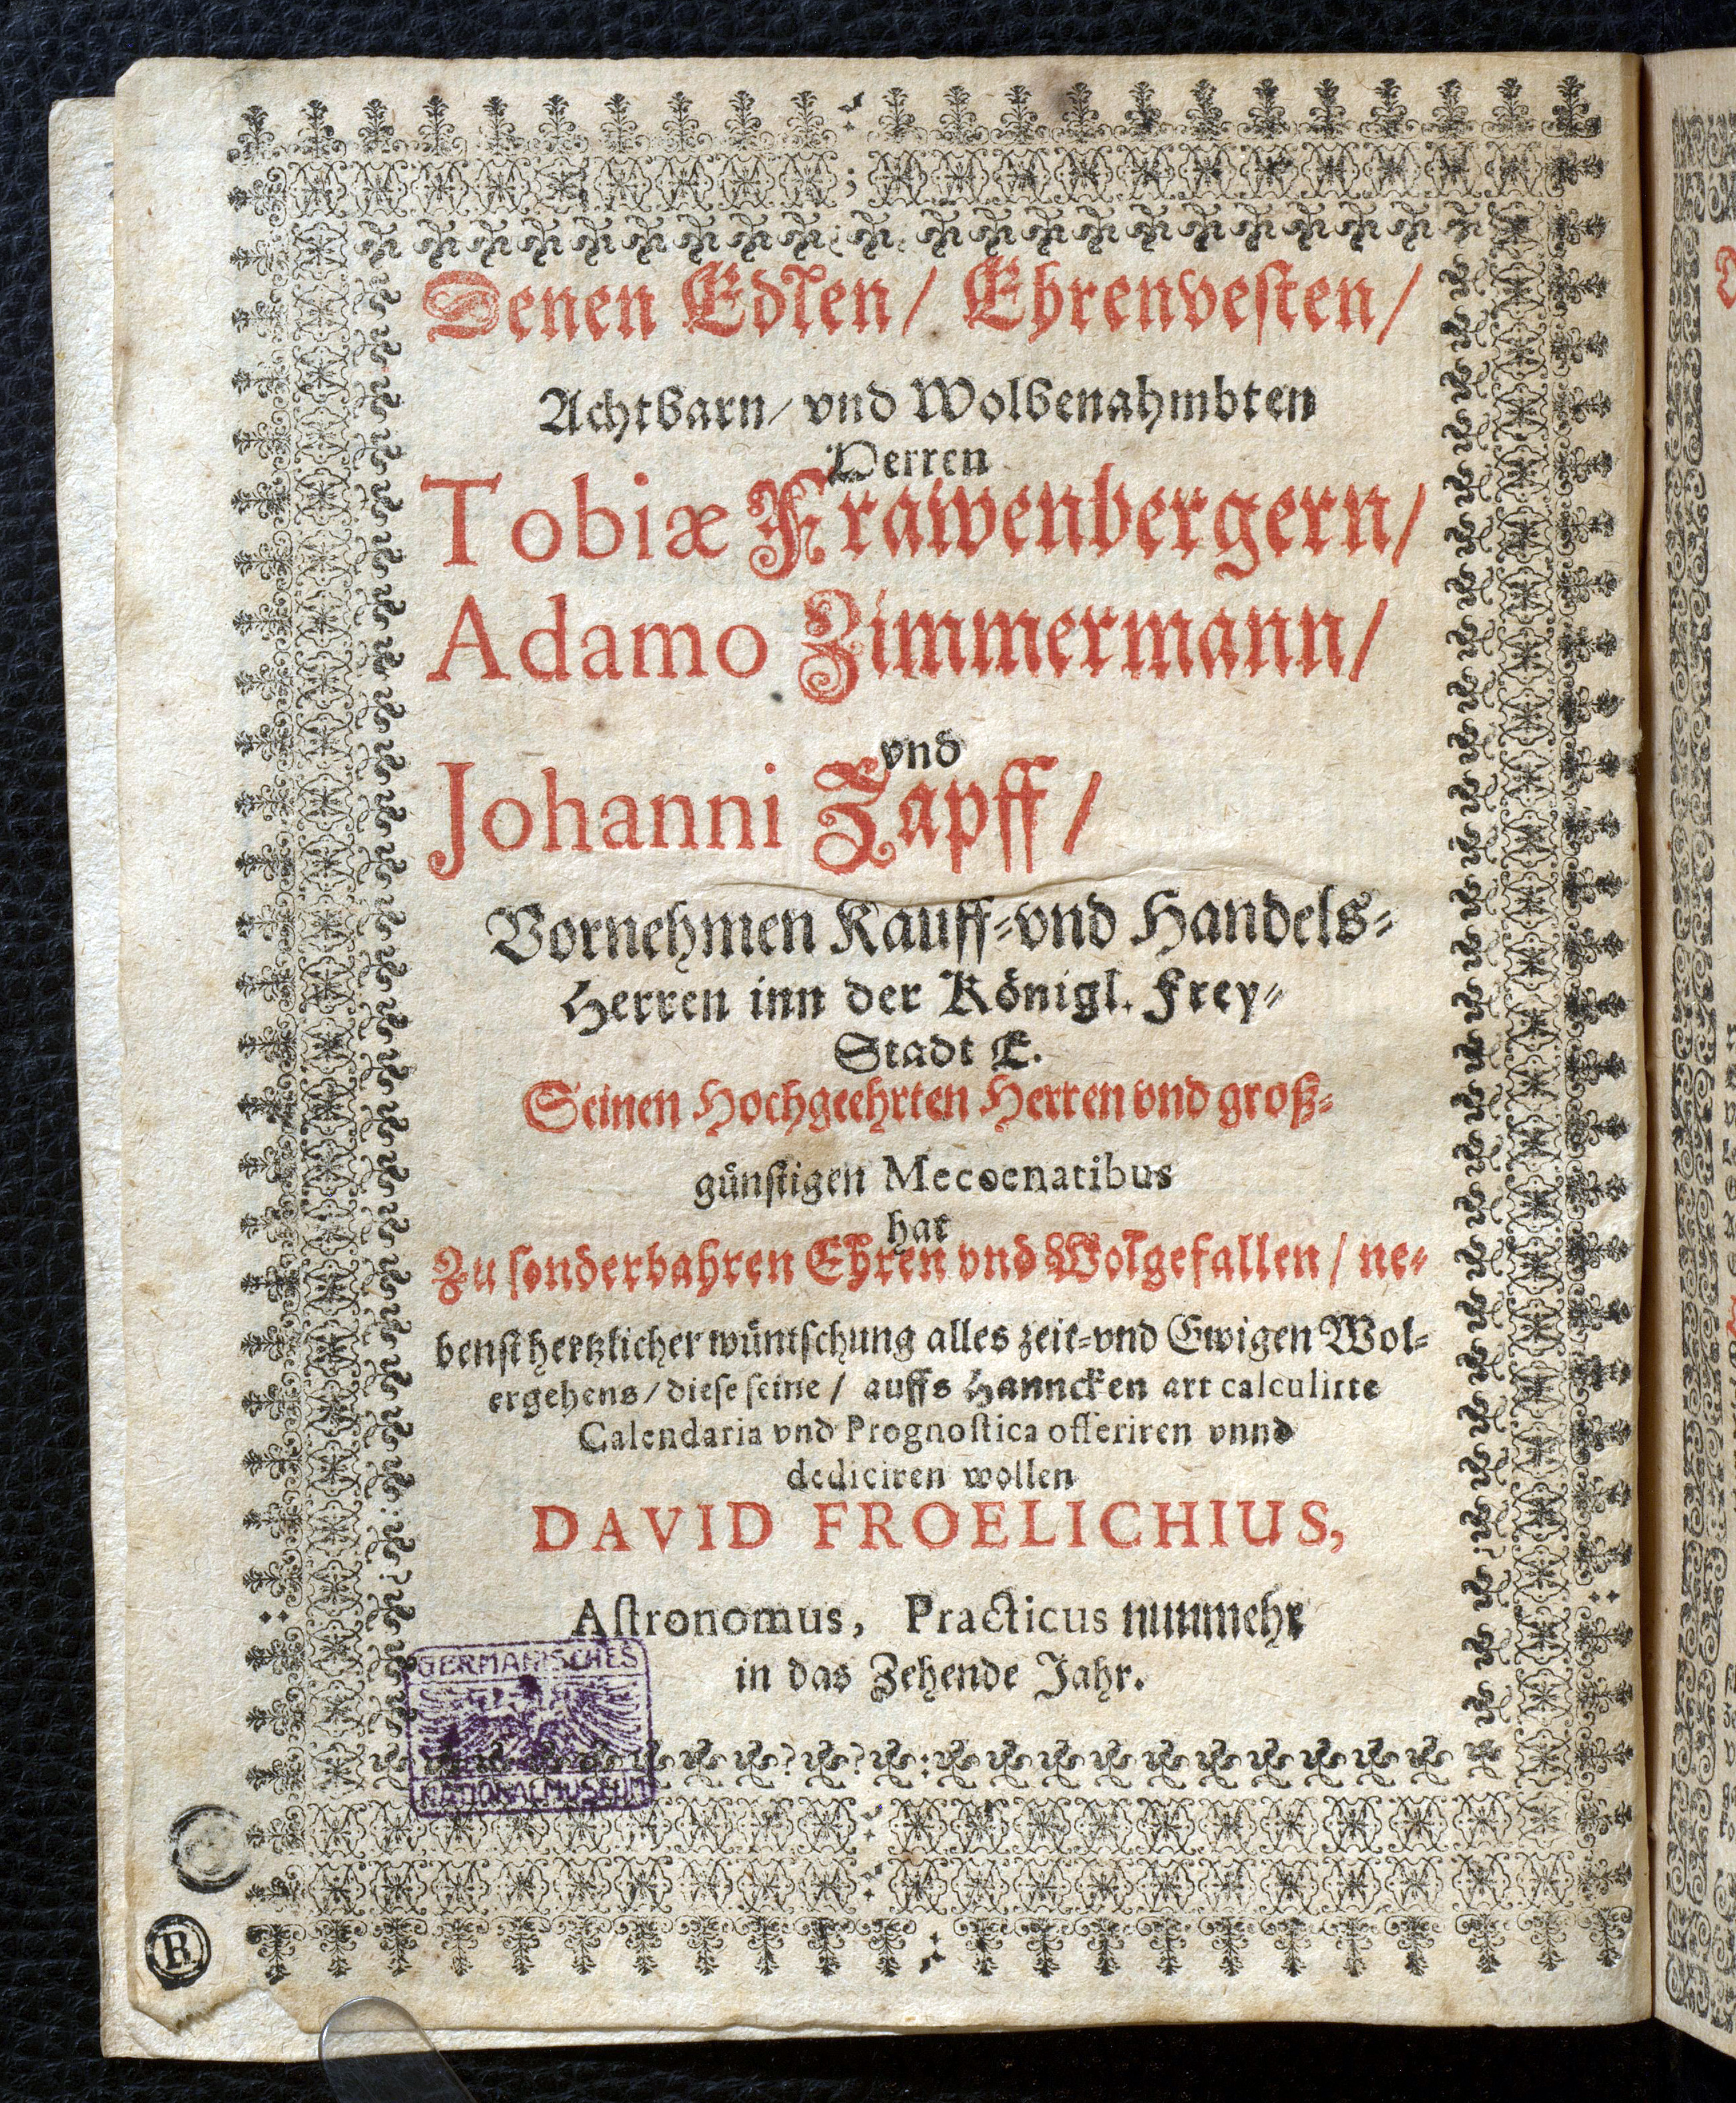 Denen Edlen/ Ehrenvesten/
Achtbarn/ vnd Wolbenahmbten
Herren
Tobiæ Frawenbergern/
Adamo Zimmermann/
vnd
Johanni Zapff/
Vornehmen Kauff-vnd Handels-
Herren inn der Königl. Frey-
Stadt E.
Seinen Hochgeehrten Herren vnd groß-
günstigen Mecoenatibus
hat
Zu sonderbahren Ehren vnd Wolgefallen/ ne-
benst hertzlicher wüntschung alles zeit-vnd Ewigen Wol-
ergehens/ diese seine/ auffs Hanncken art calculirte
Calendaria vnd Prognostica offeriren vnnd
dediciren wollen
DAVID FROELICHIUS,
Astronomus, Practicus nunmehr
in das Zehende Jahr.
GERMANISCHES
NATIONALMUSEUM
R